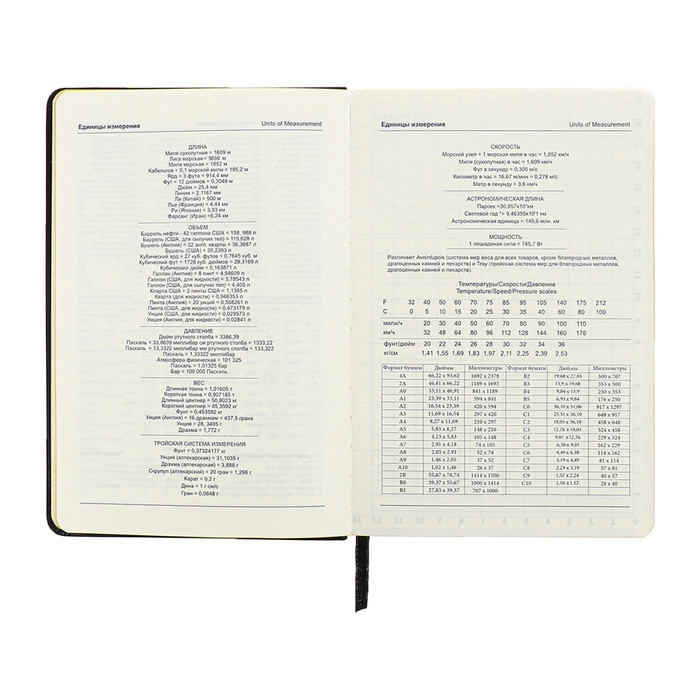 Единицы измерения Units of Measurement
ДЛИНА
Миля сухопутная = 1609 м
Лига морская = 5556 м
Миля морская = 1852 м
Кабельтов = 0,1 морской мили = 185,2 м
Ярд = 3 фута = 914,4 мм
Фут = 12 дюймов = 0,3048 м
Дюйм = 25,4 мм
Линия = 2,1167 мм
Ли (Китай) = 500 м
Лье (Франция) = 4,44 км
Ри (Япония) = 3,93 км
Фарсанг (Иран) =6,24 км
ОБЪЕМ
Баррель нефти - 42 галлона США = 158, 988 л
Баррель (США, для сыпучих тел) = 115,628 л
Бушель (Англия) = 32 англ. кварты = 36,3687 л
Бушель (США) = 35,2393 л
Кубический ярд = 27 куб. футов = 0,7645 куб. м
Кубический фут = 1728 куб. дюймов = 28,3169 л
Кубический дюйм = 0,163871 л
Галлон (Англия) = 8 пинт = 4,54609 л
Галлон (США, для жидкости) = 3,78543 л
Галлон (США, для сыпучих тел) = 4,405 л
Кварта США = 2 пинты США = 1,1365 л
Кварта (для жидкости) = 0,946353 л
Пинта (Англия) = 20 унций = 0,568261 л
Пинта (США, для жидкости) = 0,473179 л
Унция (США, для жидкости) = 0,029573 л
Унция (Англия, для жидкости) = 0,02841 л
ДАВЛЕНИЕ
Дюйм ртутного столба = 3386,39
Паскаль = 33,8639 миллибар см ртутного столба = 1333,22
Паскаль = 13,3322 миллибар мм ртутного столба = 133,322
Паскаль = 1,33322 миллибар
Атмосфера физическая = 101 325
Паскаль = 1,01325 бар
Бар = 100 000 Паскаль
ВЕС
Длинная тонна = 1,01605 т
Короткая тонна = 0,907185 т
Длинный центнер = 50,8023 кг
Короткий центнер = 45,3592 кг
Фунт = 0,453592 кг
Унция (Англия) = 16 драхмам = 437,5 грана
Унция = 28, 3495 г
Драхма = 1,772 г
ТРОЙСКАЯ СИСТЕМА ИЗМЕРЕНИЯ
Фунт = 0,37324177 кг
Унция (аптекарская) = 31,1035 г
Драхма (аптекарская) = 3,888 г
Скрупул (аптекарский) = 20 гран = 1,296 г
Карат = 0,2 г
Дина = 1 г см/с
Гран = 0,0648 г
Единицы измерения Units of Measurement
СКОРОСТЬ
Морской узел = 1 морская миля в час = 1,852 км/ч
Миля (сухопутная) в час = 1,609 км/ч
Фут в секунду = 0,305 м/с
Километр в час = 16,67 м/мин = 0,278 м/с
Метр в секунду = 3,6 км/ч
АСТРОНОМИЧЕСКАЯ ДЛИНА
Световой год
Астрономическая единица = 149,6 млн. км
МОЩНОСТЬ
1 лошадиная сила = 745,7 Вт
Различают Avoirdupois (система мер веса для всех товаров, кроме благородных металлов,
драгоценных камней и лекарств) и Troy (тройская система мер для благородных металлов,
драгоценных камней и лекарств).
Температуры/Скорости/Давление
Temperature/Speed/Pressure scales
F 32 40 50 60 70 75 85 95 105 140 175 212
C 0 5 10 15 20 25 30 35 40 60 80 100
мили/ч 20 30 40 50 60 70 80 90 100 110
км/ч 32 48 64 80 96 112 128 144 160 176
фунт/дюйм 20 22 24 26 28 30 32 34 36
кг/см 1,41 1,55 1,69 1,83 1,97 2,11 2,25 2,39 2.53
Формат бумаги Дюймы Миллиметры Формат бумаги Дюймы Миллиметры
4A 66,22 x 93,62 1682 x 2378 B2 19,68 x 27,83 500 x 707
2A 46,81 x 66,22 1189 x 1682 B3 13,9 x 19,68 353 x 500
A0 33,11 x 46,81 841 x 1189 B4 9,84 x 13,9 250 x 353
A1 23,39 x 33,11 594 x 841 B5 6,93 x 9,84 176 x 250
A2 16,54 x 23,39 420 x 594 C0 36,10 x 51,06 917 x 1297
A3 11,69 x 16,54 297 x 420 C1 25,51 x 36,10 648 x 917
A4 8,27 x 11,69 210 x 297 C2 18,03 x 25,51 458 x 648
A5 5,83 x 8,27 148 x 210 C3 12,76 x 18,03 324 x 458
A6 4,13 x 5,83 105 x 148 C4 9,01 x 12,76 229 x 324
A7 2,91 x 4,13 74 x 105 C5 6,38 x 9,01 162 x 229
A8 2,05 x 2,91 52 x 74 C6 4,49 x 6,38 114 x 162
A9 1,46 x 2,05 37 x 52 C7 3,19 x 4,49 81 x 114
A10 1,02 x 1,46 26 x 37 C8 2,24 x 3,19 57 x 81
2B 55,67 x 78,74 1414 x 1500 C9 1,57 x 2,24 40 x 57
B0 39,37 x 55,67 1000 x 1414 C10 1,10 x 1,57 28 x 40
B1 27,83 x 39,37 707 x 1000